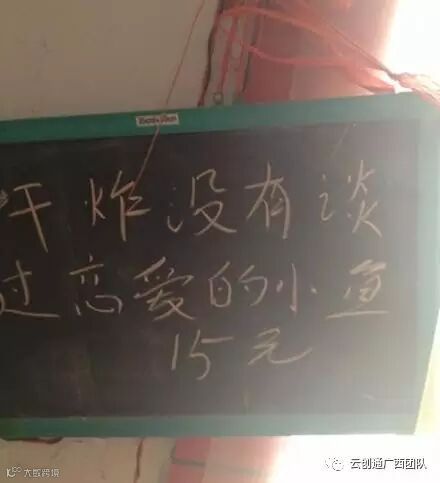 干炸没有谈
过恋爱的小鱼
15元
云创通广西团队
大数跨境